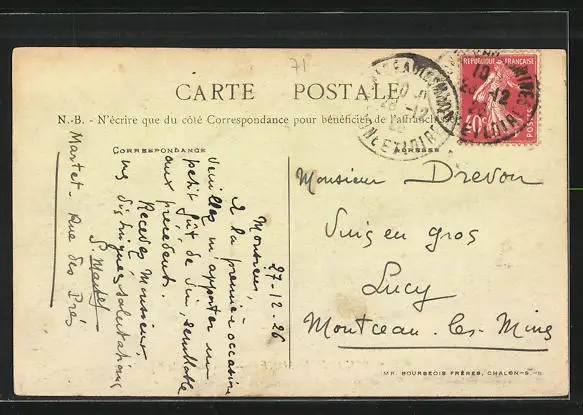 71
CARTE POSTALE
N.-B. - N'écrire que du côté Correspondance pour bénéficier de l'affranch
CORRESPONDANCE
ADRESSE
27-12-26
Monsieur,
à la première occasion
veuillez m'apporter un
petit fût de vin, semblable
aux précédents.
Recevez Monsieur,
mes distinguées salutations
Martet
Martet - Rue des Prés
Monsieur Drevon
Vins en gros
Lucy
Montceau-les-Mines
RÉPUBLIQUE FRANÇAISE
40c
POSTES
MINES
10
28 -12
26
ET LOIRE
MP. BOURGEOIS FRÈRES, CHALON-S-S.